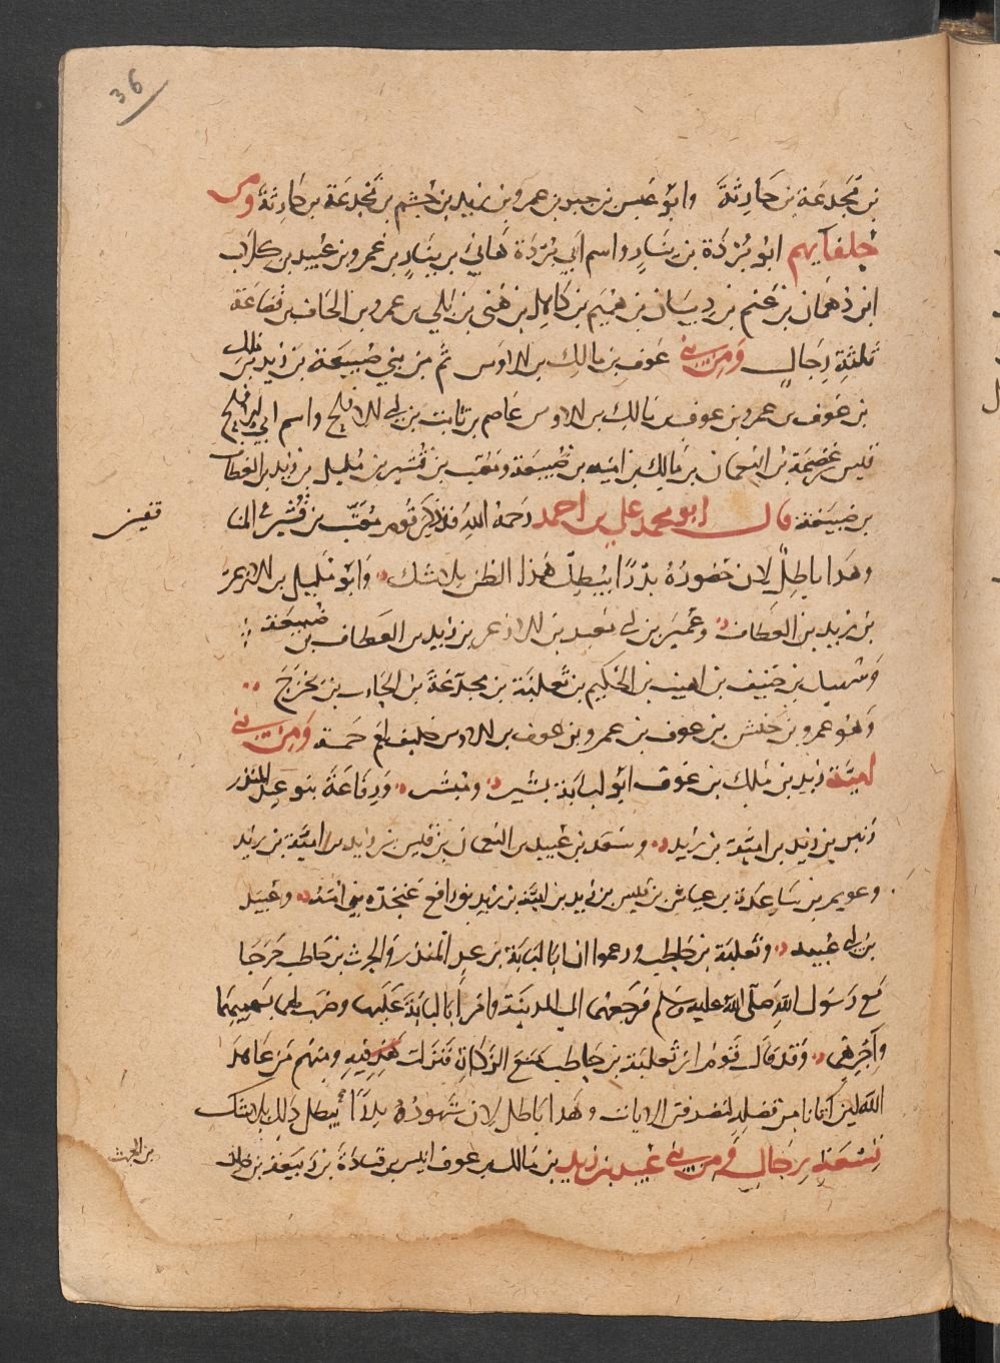 36
بن مجدعة بن حارثة وابو عبس بن جبر بن عمرو بن زيد بن جشم بن مجدعة بن حارثة ومن
حلفايهم ابو بردة بن نيار واسم ابي بردة هاني بن نيار بن عمرو بن عبيد بن كلاب
ابن دهمان بن غنم بن ذبيان بن هميم بن كامل بن هني بن بلي بن عمرو بن الحاف بن قضاعة
ثلثة رجال ومن بني عوف بن مالك بن الاوس ثم من بني ضبيعة بن زيد بن ملك
بن عوف بن عمرو بن عوف بن مالك بن الاوس عاصم بن ثابت بن ابي الاقلح واسم ابي الاقلح
قيس بن عصمة بن النعمان بن مالك بن امية بن ضبيعة ومعتب بن قشير بن مليل بن زيد بن العطاف
بن ضبيعة قال ابو محمد علي بن احمد رحمه الله قد ذكر قوم معتب بن قشير في المنا
فقين
وهذا باطل لان حضوره بدرًا يبطل هذا الظن بلا شك وابو مليل بن الازعر
بن زيد بن العطاف وعمير بن معبد بن الازعر بن زيد بن العطاف بن ضبيعة
وسهل بن حنيف بن واهب بن الحكيم بن ثعلبة بن مجدعة بن الحارث بن بحزج
وهو عمرو بن حنش بن عوف بن عمرو بن عوف بن الاوس خمسة ومن بني
امية بن زيد بن ملك بن عوف ابو لبابة بشير ومبشر ورفاعة بنو عبد المنذر
بن زنبر بن زيد بن امية بن زيد وسعد بن عبيد بن النعمان بن قيس بن زيد بن امية بن زيد
وعويم بن ساعدة بن عياش بن قيس بن زيد بن امية بن زيد ورافع بن عنجدة بني امية وعبيد
بن ابي عبيد وثعلبة بن حاطب وزعموا ان ابا لبابة بن عبد المنذر والحرث بن حاطب خرجا
مع رسول الله صلى الله عليه وسلم فرجعهما الى المدينة وامر ابا لبابة عليها وضرب لهما بسهميهما
واجرهما وقد قال قوم ان ثعلبة بن حاطب منع الزكاة فنزلت فيه ومنهم من عاهد
الله لين اتانا من فضله لنصدقن الايات وهذا باطل لان شهوده بدرًا يبطل ذلك بلا شك
تسعة رجال ومن بني عبيد بن زيد بن مالك بن عوف انيس بن قتادة بن ربيعة بن خلد
بن الحرث